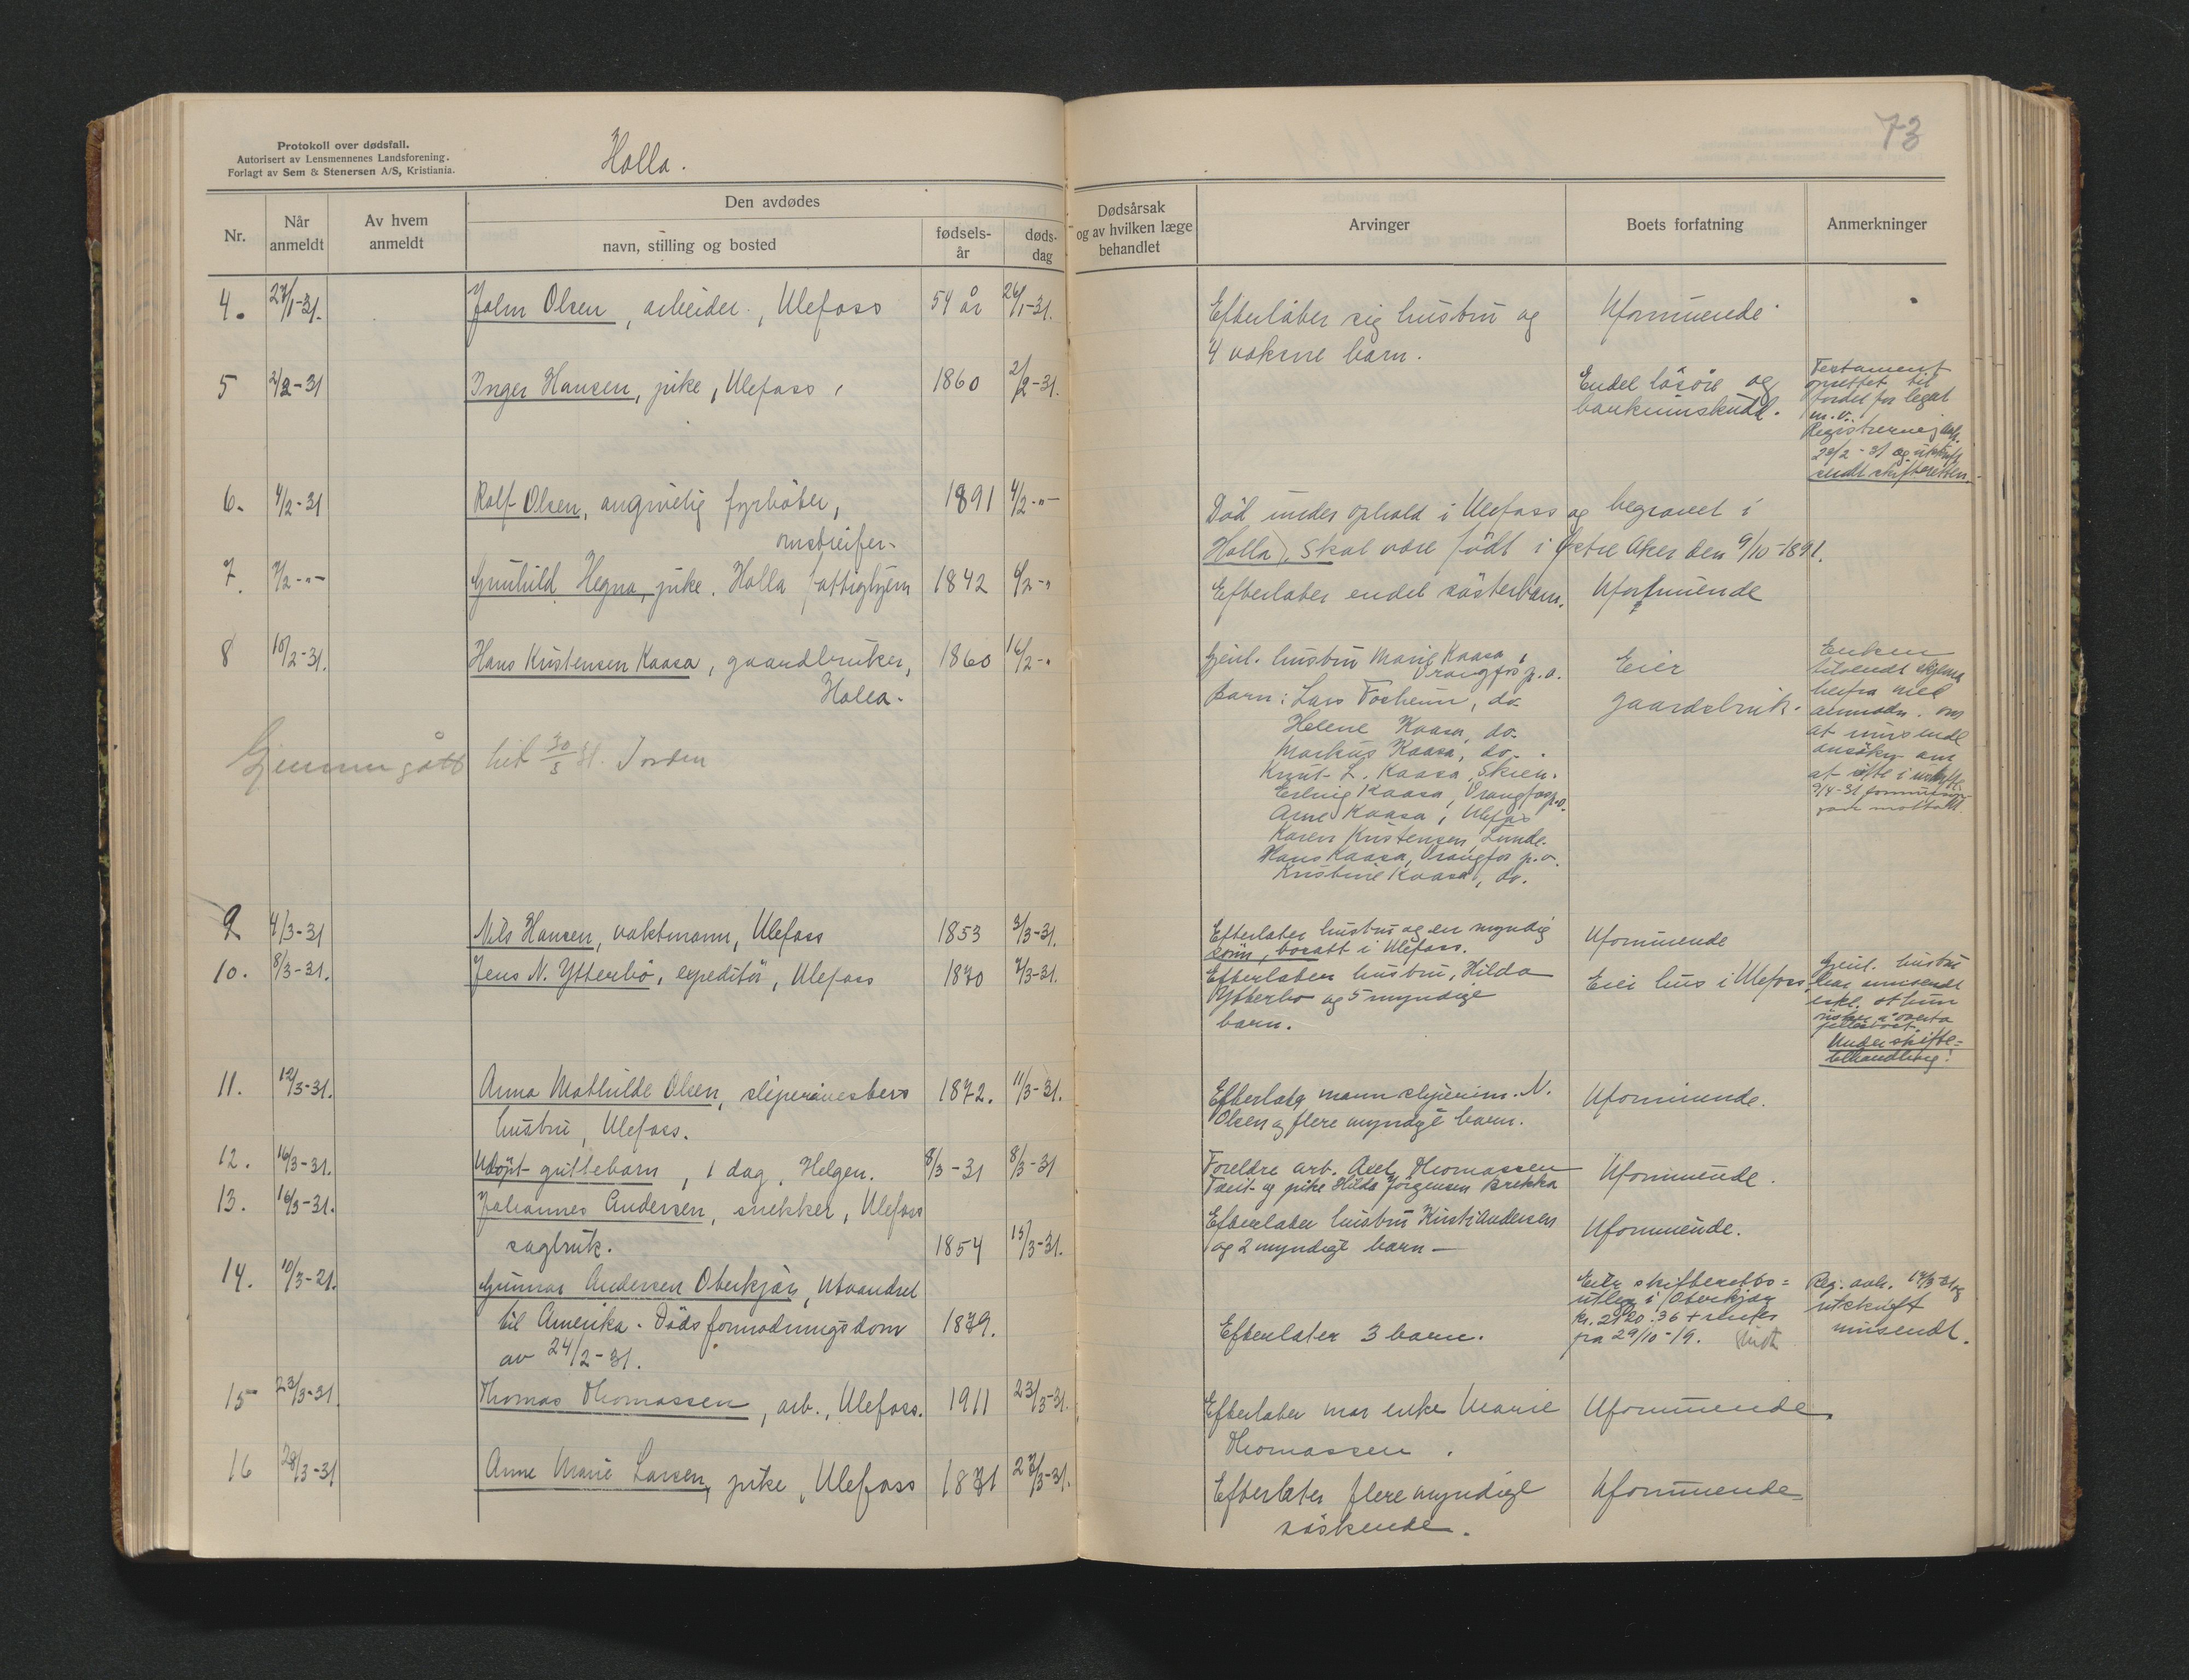 Protokoll over dødsfall.
Autorisert av Lensmennenes Landsforening.
Forlagt av Sem & Stenersen A/S, Kristiania.
Holla.
73
Nr.
Når anmeldt
Av hvem anmeldt
Den avdødes
navn, stilling og bosted
fødsels-år
døds-dag
Dødsårsak og av hvilken læge behandlet
Arvinger
Boets forfatning
Anmerkninger
4. 27/1-31. John Olsen, arbeider., Ulefoss 54 år 26/1-31. Efterlater sig hustru og Uformuende
4 voksne barn.
5 2/2-31 Inger Hansen, pike, Ulefoss, 1860 2/2-31. Endel løsøre og
bankinnskudd.
Testament
oprettet til
fordel for legat
m.v.
Registrering avh.
2/2-31 og utskrift
sendt skifteretten.
6. 4/2-31 Rolf Olsen, angivelig fyrbøter, 1891 4/2-"- Død under ophold i Ulefoss og begravet i
omstreifer-
Holla. Skal være født i Østre Aker den 9/10-1891.
7. 7/2-"- Gunhild Hegna, pike. Holla fattighjem 1842 6/2-" Efterlater endel søsterbarn. Uformuende
8 18/2-31. Hans Kristensen Kaasa, gaardbruker, 1860 16/2-"
Holla.
Gjenl. hustru Marie Kaasa,
Vrangfos p.o.
barn: Lars Fosheim, do
Helene Kaasa, do.
Markus Kaasa, do.
Knut L. Kaasa, Skien.
Erling Kaasa, Vrangfos p.o.
Arne Kaasa, Ulefos
Karen Kristensen, Lunde.
Hans Kaasa, Vrangfos p.o.
Kristine Kaasa, do.
Eier
gaardsbruk.
Enken
tilsendt skjema
herfra med
anmodn. om
at innsende
ansøkn. om
at sitte i uskifte.
9/4-31
Gjennemgått hit 30/3 31. Jorden
9 4/3-31 Nils Hansen, vaktmann, Ulefoss 1853 3/3-31. Efterlater hustru og en myndig Uformuende
sønn, bosatt i Ulefoss.
10. 8/3-31. Jens N. Ytterbø, expeditør, Ulefoss 1870 7/3-31. Efterlater hustru, Hilda Eier hus i Ulefoss,
Ytterbø og 5 myndige
barn.
Gjenl. hustru
har innsendt
erkl. at hun
ønsker å overta
fellesboet.
Under skifte-
behandling!
11. 12/3-31. Anna Mathilde Olsen, sliperimesters 1872. 11/3-31. Efterlatg mann sliperim. N. Uformuende.
hustru, Ulefoss. Olsen og flere myndige barn.
12. 16/3-31. Udøpt guttebarn, 1 dag, Helgen. 8/3-31 8/3-31 Foreldre arb. Axel Thomassen Uformuende.
Tveit og pike Hilda Jørgensen Brekka
13. 16/3-31. Johannes Andersen, snekker, Ulefoss Efterlater hustru Kirsti Andersen Uformuende.
sagbruk. 1854 15/3-31. og 2 myndige barn -
14. 10/3-31. Gunnar Andersen Oterkjær, utvandret
til Amerika. Dødsformodningsdom 1879. Efterlater 3 barn.
av 24/2-31.
Eier skifteretts=
utlegg i Oterkjær
kr. 2120.36 + renter
fra 29/10-19.
Reg. avh. 14/3-31 og
utskrift
innsendt.
15 23/3-31 Thomas Thomassen, arb., Ulefoss. 1911 23/3-31. Efterlater mor enke Marie Uformuende.
Thomassen.
16 28/3-31 Anne Marie Larsen, pike, Ulefoss 1871 27/3-31. Efterlater flere myndige Uformuende.
søskende.